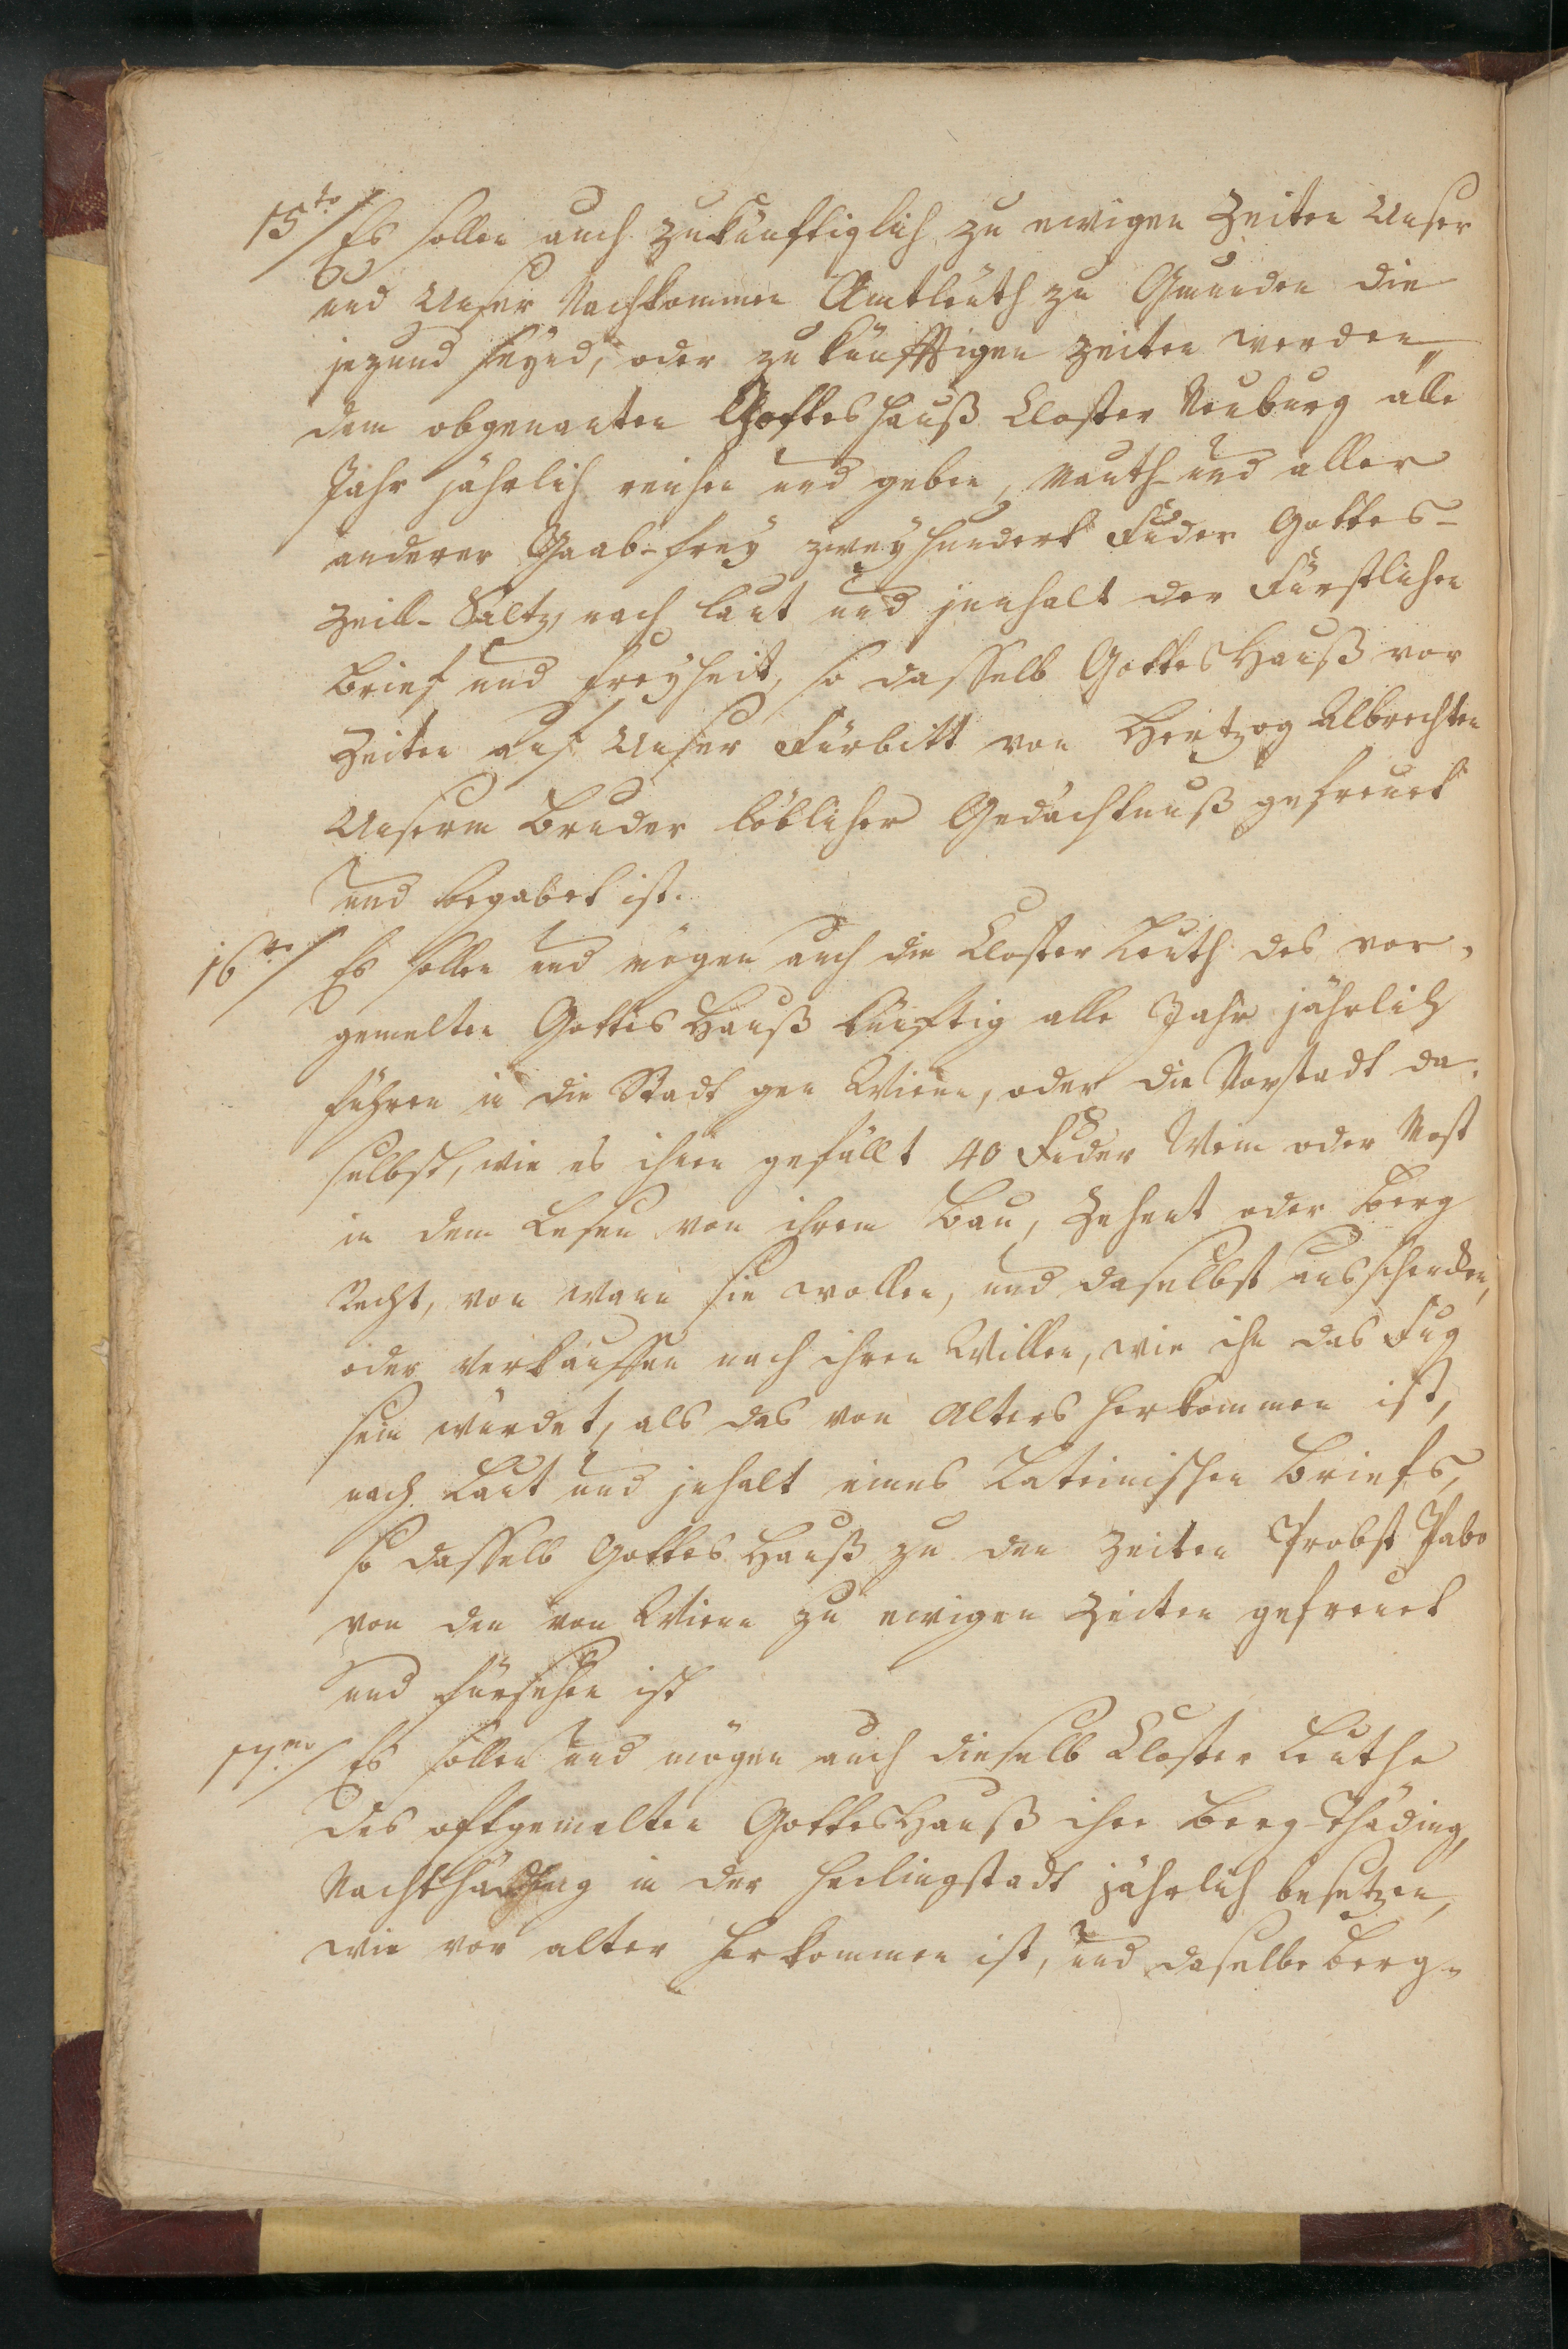 15to/ Es sollen auch zukünftiglich zu ewigen Zeiten Unser
und Unser Nachkommen Amtleuth zu Gmunden die
jezund seynd, oder zu künfftigen Zeiten werden,
dem obgenanten Gotteshauß Closter Neuburg alle
Jahr jährlich reichen und geben, Mauth- und aller
anderer Gaab-frey zweyhundert Fuder Gottes-
Zeill-Saltz, nach laut und jnnhalt der Fürstlichen
Brief und Freyheit, so dasselb GottesHauß vor
Zeiten auf Unser Fürbitt von Hertzog Albrechten
Unserm Bruder löblicher Gedächtnuß gefreuet
und begabet ist.
16to/ Es sollen und mögen auch die Closter Leuth des vor-
gemelten GottesHauß künftig alle Jahr jährlich
führen in die Stadt gen Wienn, oder die Vorstadt da-
selbst, wie es ihnen gefällt 40 Fuder Wein oder Most
in dem Lesen von ihrem Bau, Zehent oder Berg
Recht, von wann sie wollen, und daselbst ausschenken,
oder verkauffen nach ihren Willen, wie ihn das Fug
sein würdet, als das von Alters herkommen ist,
nach Laut und jnhalt eines Lateinischen Briefs,
so dasselb Gottes Hauß zu den Zeiten Probst Pabo
von den von Wienn zu ewigen Zeiten gefreuet
und fürsehen ist
17mo/ Es sollen und mögen auch dieselb Closter Leuthe
des oftgemelten GottesHauß ihre Berg-Thäding,
Nachthäding in der Heilingstadt jährlich besetzen,
wie vor alter herkommen ist, und daselbe Berg-